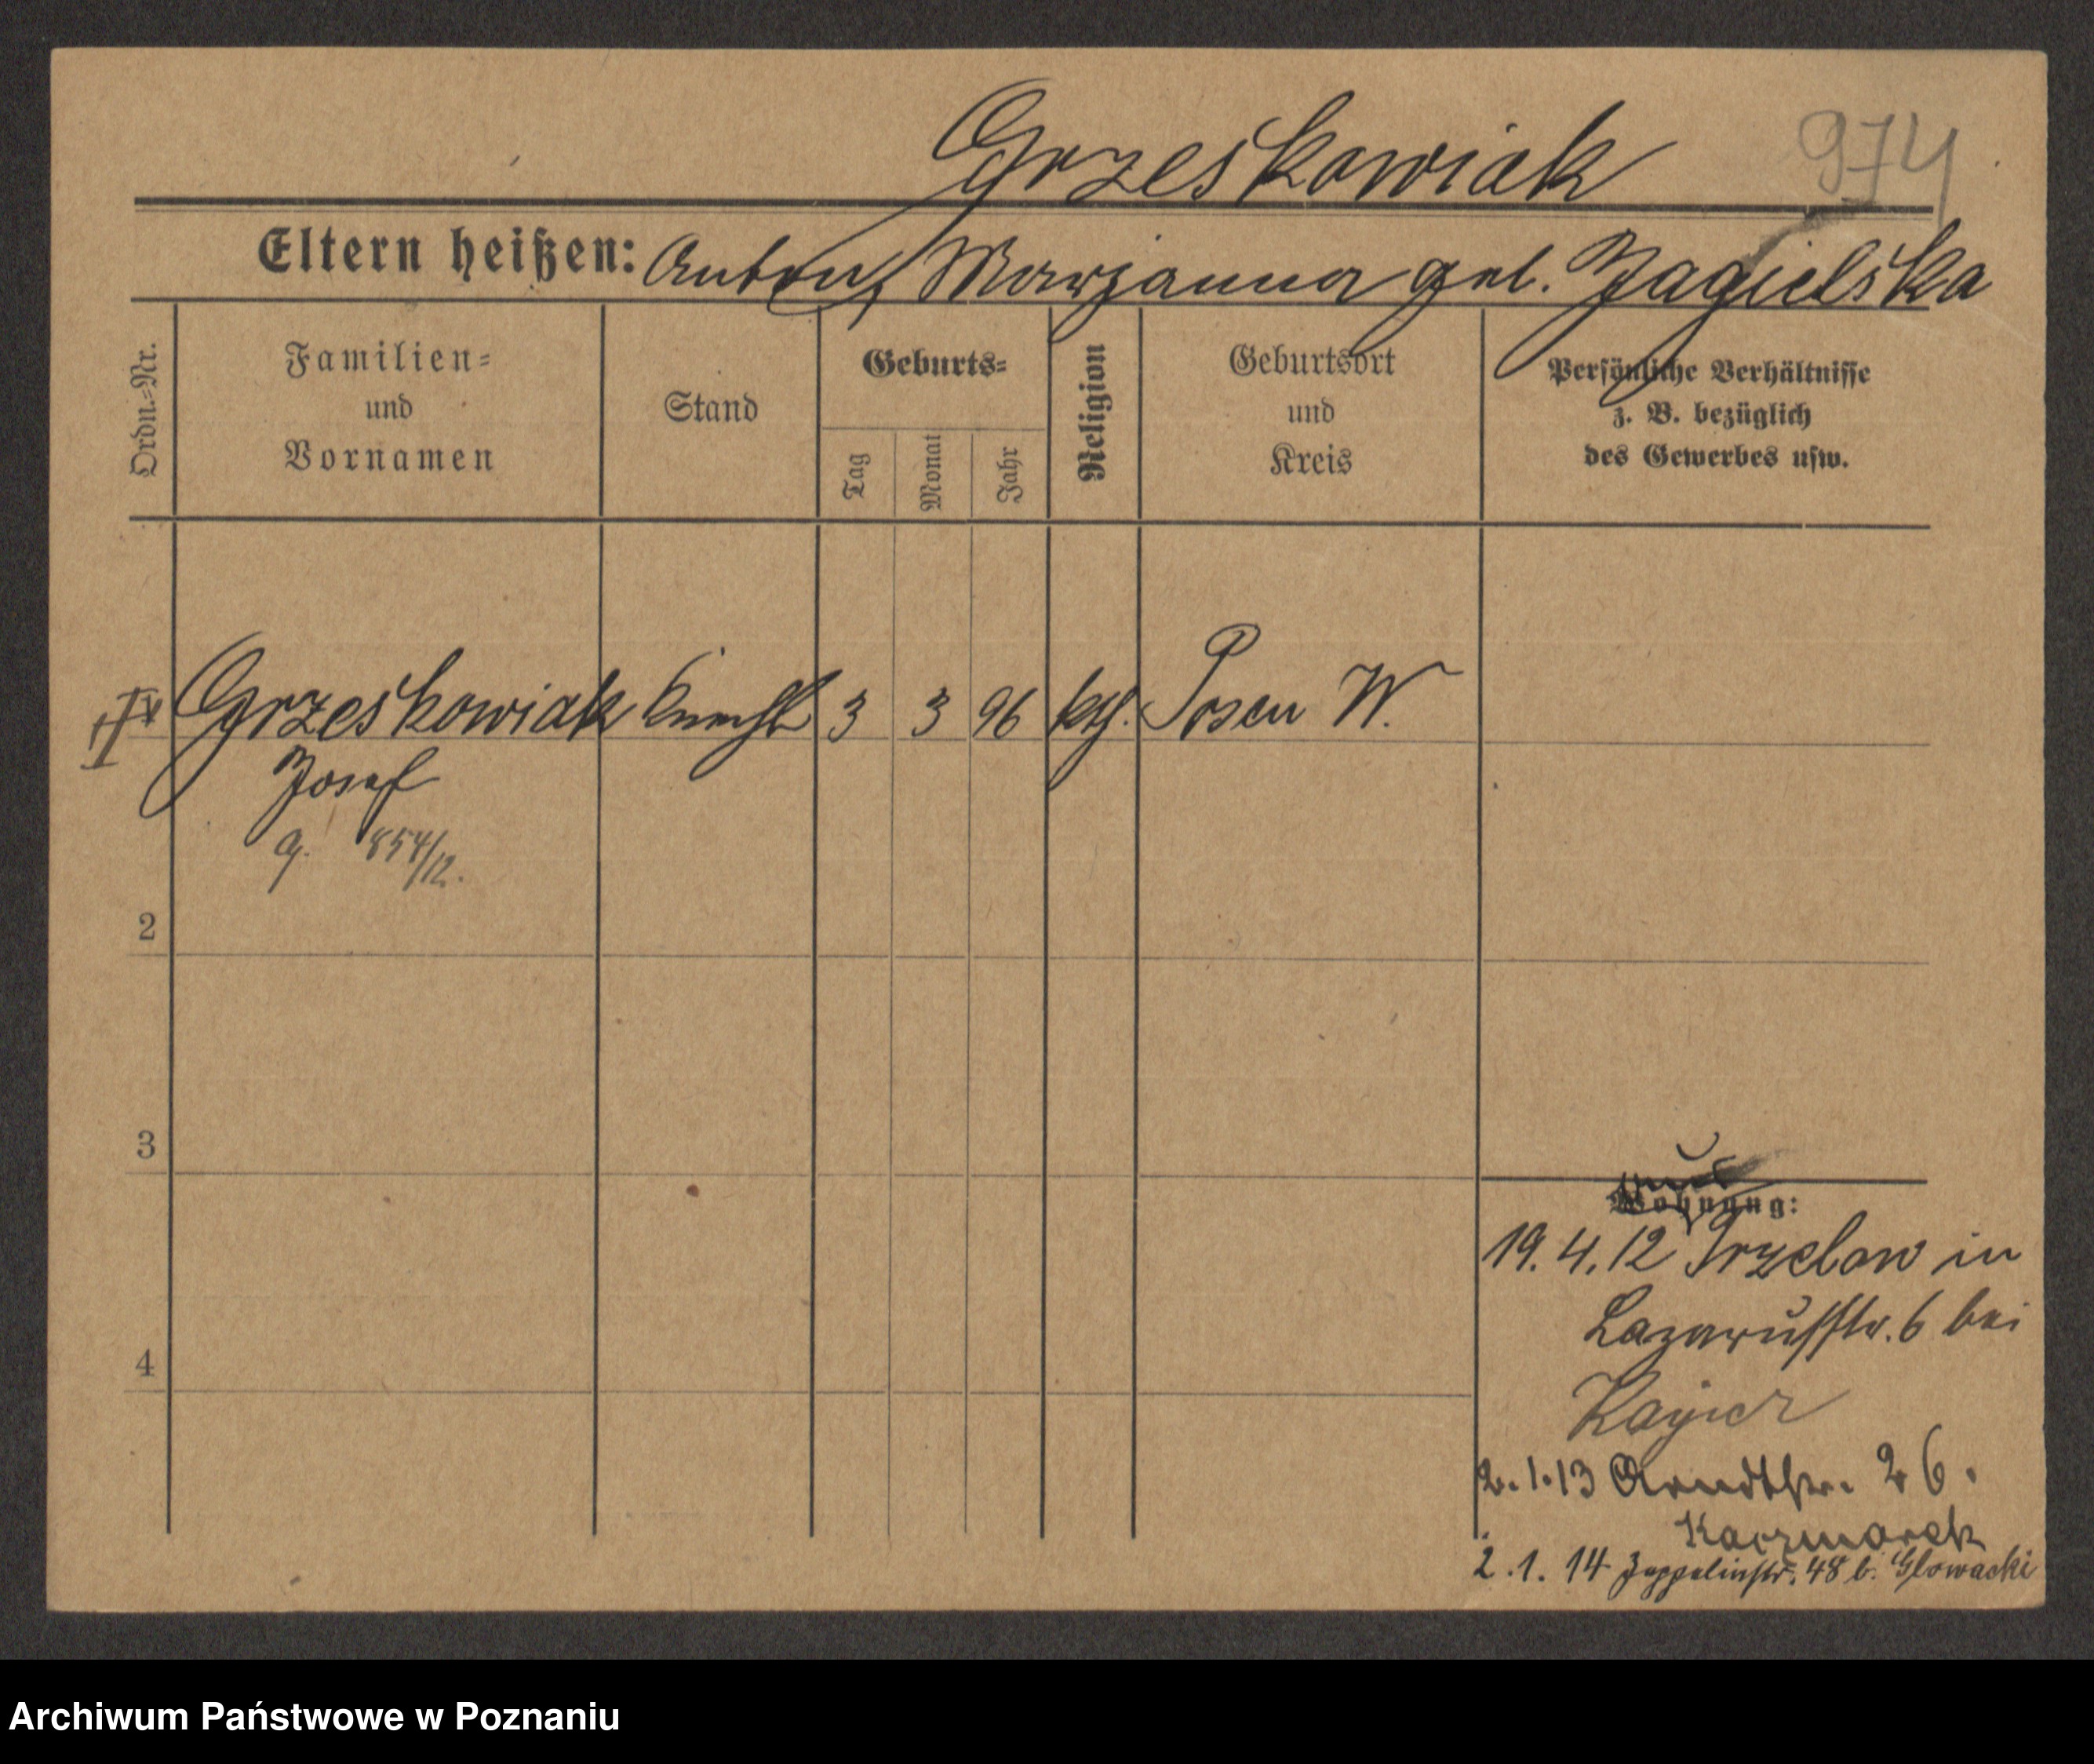 Grzeskowiak 974
Eltern heißen: Anton, Marjanna geb. Jagielska
Ordn.-Nr.
Familien-
und
Vornamen
Stand
Geburts-
Tag
Monat
Jahr
Religion
Geburtsort
und
Kreis
Persönliche Verhältnisse
z. B. bezüglich
des Gewerbes usw.
Grzeskowiak Knecht 3 3 96 kth. Posen W.
Josef
G. 854/12.
2
3
4
Wohnung:
19. 4. 12 in
Lazarusstr. 6 bei
Kajser
2. 1. 13 Arndtstr. 26.
Kaczmarek
2. 1. 14 Zeppelinstr. 48 b. Glowacki
Archiwum Państwowe w Poznaniu